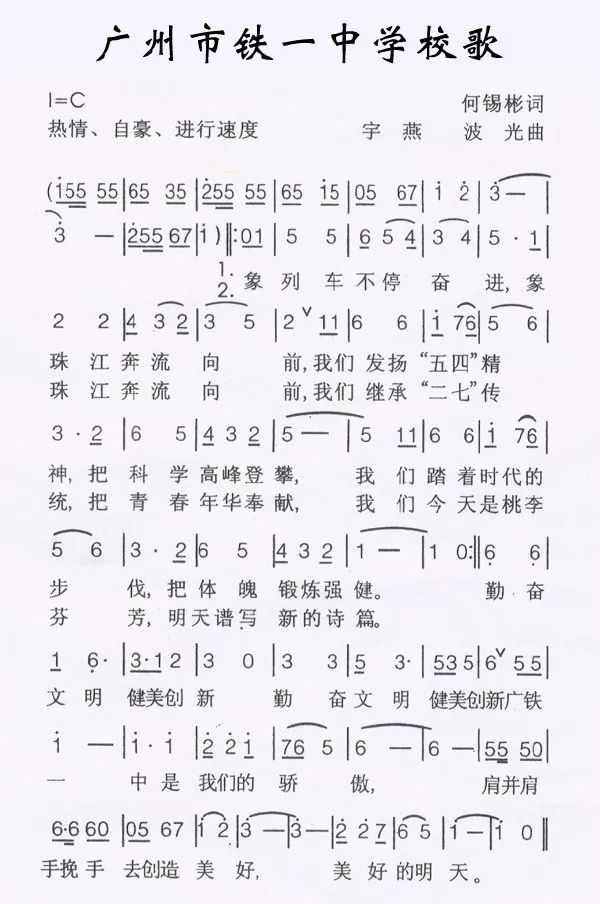 广州市铁一中学校歌
1=C
何锡彬词
热情、自豪、进行速度
宇燕 波光曲
(155 55 | 65 35 | 255 55 | 65 15 | 05 67 | 1 2 | 3 — |
3 — | 255 67 | 1 ) ‖: 01 | 5 5 | 6 5 4 | 3 4 | 5 · 1 |
1. 象列车不停奋进,象
2.
2 2 | 4 3 2 | 3 5 | 2 ∨ 11 | 6 6 | 1 76 | 5 6 |
珠江奔流向前,我们发扬“五四”精
珠江奔流向前,我们继承“二七”传
3 · 2 | 6 5 | 432 | 5 — | 5 11 | 6 6 | 1 76 |
神,把科学高峰登攀,我们踏着时代的
统,把青春年华奉献,我们今天是桃李
5 6 | 3 · 2 | 6 5 | 4 3 2 | 1 — | 1 0 :‖ 6 6 |
步伐,把体魄锻炼强健。勤奋
芬芳,明天谱写新的诗篇。
1 6 · | 3·1 2 | 3 0 | 3 3 | 5 3 · | 53 5 | 6 ∨ 5 5 |
文明健美创新 勤奋文明健美创新广铁
1 — | 1 · 1 | 2 21 | 76 5 | 6 — | 6 — | 55 50 |
一中是我们的骄傲,肩并肩
6·6 60 | 05 67 | 1 2 | 3 — | 3 — | 2 27 | 6 5 | 1 — | 1 0 ‖
手挽手 去创造美好,美好的明天。